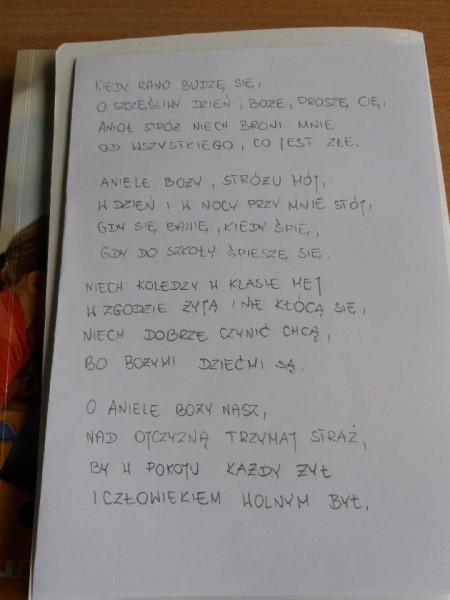 KIEDY RANO BUDZĘ SIĘ,
O SZCZĘŚLIWY DZIEŃ, BOŻE, PROSZĘ CIĘ,
ANIOŁ STRÓŻ NIECH BRONI MNIE
OD WSZYSTKIEGO, CO JEST ZŁE.
ANIELE BOŻY, STRÓŻU MÓJ,
W DZIEŃ I W NOCY PRZY MNIE STÓJ,
GDY SIĘ BAWIĘ, KIEDY ŚPIĘ,
GDY DO SZKOŁY ŚPIESZĘ SIĘ.
NIECH KOLEDZY W KLASIE MEJ
W ZGODZIE ŻYJĄ I NIE KŁÓCĄ SIĘ,
NIECH DOBRZE CZYNIĆ CHCĄ,
BO BOŻYMI DZIEĆMI SĄ.
O ANIELE BOŻY NASZ,
NAD OJCZYZNĄ TRZYMAJ STRAŻ,
BY W POKOJU KAŻDY ŻYŁ
I CZŁOWIEKIEM WOLNYM BYŁ.